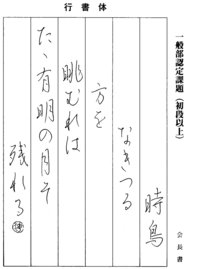 行書体
一般部認定課題(初段以上)
会長書
時鳥
なきつる
方を
眺むれは
たゝ有明の月そ
残れる